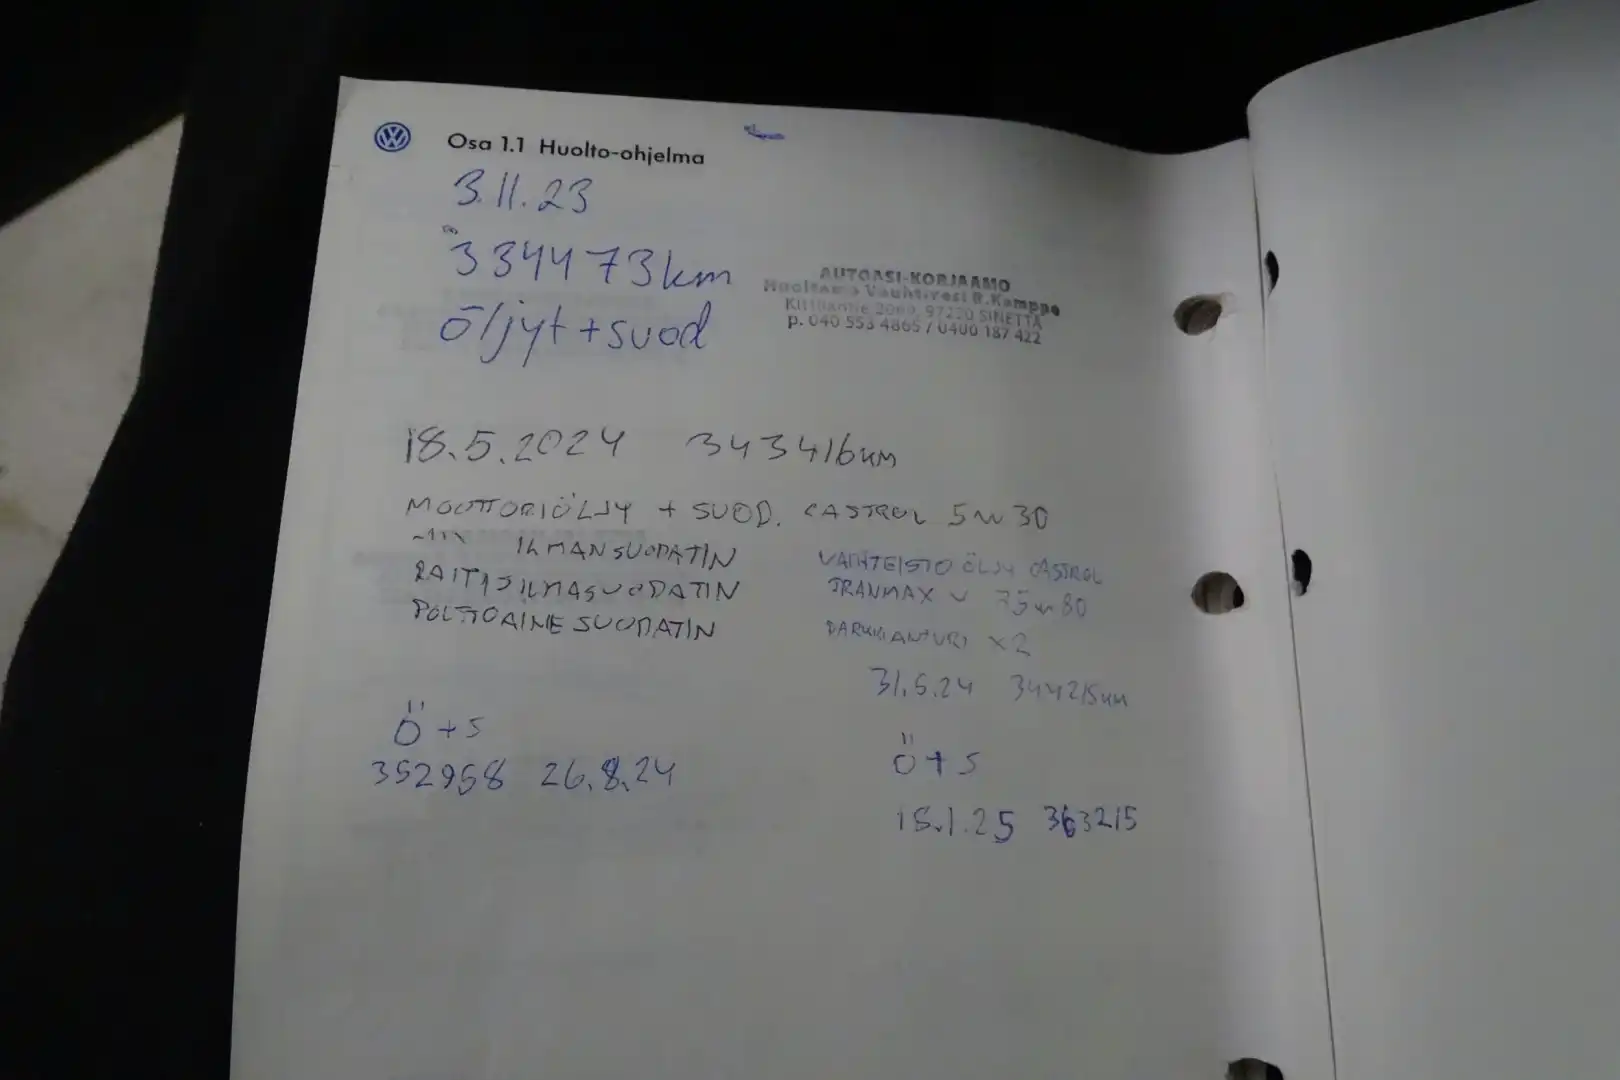 Osa 1.1 Huolto-ohjelma
3.11.23
334473km
öljyt + suod
AUTOASI-KORJAAMO
Huoltamo Vauhtivesi R.Kamppe
97220 SINETTÄ
p. 040 553 4865 / 0400 187 422
18.5.2024 343416km
MOOTTORIÖLJY + SUOD. CASTROL 5W30
ILMANSUODATIN
RAITISILMASUODATIN
POLTTOAINE SUODATIN
VAIHTEISTO ÖLJY CASTROL
TRANMAX V 75W80
PARKKIANTURI x2
31.5.24 344215km
Ö + S
352958 26.8.24
Ö + S
18.1.25 363215